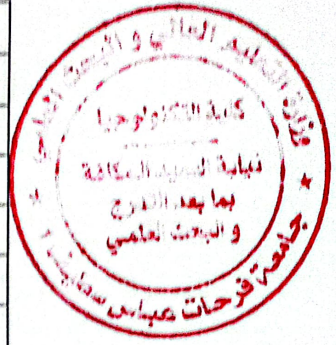 وزارة التعليم العالي و البحث العلمي
كلية التكنولوجيا
نيابة العميد المكلفة
بما بعد التدرج
و البحث العلمي
جامعة فرحات عباس سطيف 1